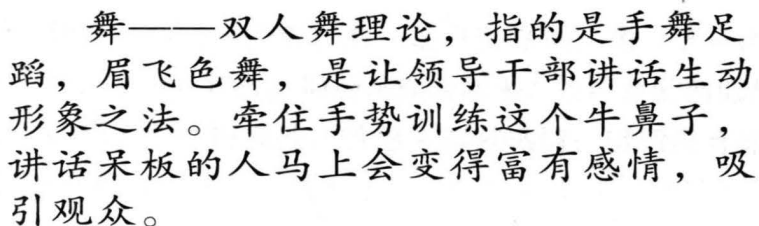 舞——双人舞理论，指的是手舞足
蹈，眉飞色舞，是让领导干部讲话生动
形象之法。牵住手势训练这个牛鼻子，
讲话呆板的人马上会变得富有感情，吸
引观众。